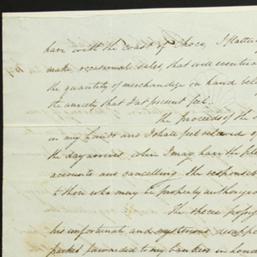 have with the Coast of Choco, I flatter
make occasional sales, that will essential
the quantity of merchandize on hand belo
the anxiety that I at present feel.
the Proceeds of the
in my hands and I shall feel relieved of
the day arrives, when I may have the ple
accounts and cancelling the responsib
to those who may be properly authoriz
The above
his unfortunate and mysterious disappe
packet forwarded to my Bankers in Lond